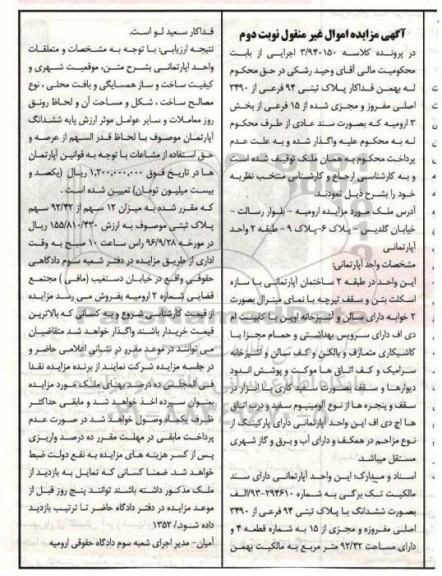 آگهی مزایده اموال غیر منقول نوبت دوم
در پرونده کلاسه ۳/۹۴۰۱۵۰ اجرایی از بابت
محکومیت مالی آقای وحید رشکی در حق محکوم
له بهمن فداکار پلاک ثبتی ۹۴ فرعی از ۳۴۹۰
اصلی مفروز و مجزی شده از ۱۵ فرعی از بخش
۳ ارومیه که بصورت سند عادی از طرف محکوم
له به محکوم علیه واگذار شده و به علت عدم
پرداخت محکوم به همان ملک توقیف شده است
و به کارشناسی ارجاع و کارشناس منتخب نظریه
خود را بشرح ذیل نمودند.
آدرس ملک مورد مزایده ارومیه - بلوار رسالت -
خیابان گلدیس - پلاک ۶-پلاک ۹ - طبقه ۲ واحد
آپارتمانی
مشخصات واحد آپارتمانی:
این واحد در طبقه ۲ ساختمان آپارتمانی با سازه
اسکلت بتن و سقف تیرچه با نمای مینرال بصورت
۲ خوابه دارای سالن و آشپزخانه اوپن با کابینت ام
دی اف دارای سرویس بهداشتی و حمام مجزا با
کاشیکاری متعارف و بالکن و کف سالن و آشپزخانه
سرامیک و کف اتاق ها موکت و پوشش اندود
دیوارها و سقف سفید کاری با ابزار در
سقف و پنجره ها از نوع آلومینیوم سفید و درب اتاق
ها اچ دی اف این واحد آپارتمانی دارای پارکینگ از
نوع مزاحم در همکف و دارای آب و برق و گاز شهری
مستقل میباشد.
اسناد و مدارک: این واحد آپارتمانی دارای سند
مالکیت تک برگی به شماره ۹۳-۲۹۴۶۱۰/الف
بصورت ششدانگ با پلاک ثبتی ۹۴ فرعی از ۳۴۹۰
اصلی مفروزه و مجزی از ۱۵ به شماره قطعه ۴ و
دارای مساحت ۹۲/۳۲ متر مربع به مالکیت بهمن
فداکار سعید لو است.
نتیجه ارزیابی: با توجه به مشخصات و متعلقات
واحد آپارتمانی بشرح متن، موقعیت شهری و
کیفیت ساخت و ساز همسایگی و بافت محلی ، نوع
مصالح ساخت ، شکل و مساحت آن و لحاظ رونق
روز معاملات و سایر عوامل موثر ارزش پایه ششدانگ
آپارتمان موصوف با لحاظ قدر السهم از عرصه و
حق استفاده از مشاعات با توجه به قوانین آپارتمان
ها در تاریخ فوق ۱,۲۰۰,۰۰۰,۰۰۰ ریال (یکصد و
بیست میلیون تومان) تعیین شده است .
که مقرر شده به میزان ۱۲ سهم از ۹۲/۳۲ سهم
پلاک ثبتی موصوف به ارزش ۱۵۵/۸۱۰/۴۳۰ ریال
در مورخه ۹۶/۹/۲۸ راس ساعت ۱۰ صبح به وقت
اداری از طریق مزایده در دفتر شعبه سوم دادگاهی
حقوقی واقع در خیابان دستغیب (مافی) مجتمع
قضایی شماره ۲ ارومیه بفروش می رسد مزایده
از قیمت کارشناسی شروع و به کسانی که بالاترین
قیمت خریدار باشند واگذار خواهد شد متقاضیان
می توانند در موعد مقرر در نشانی اعلامی حاضر و
در جلسه مزایده شرکت نمایند از برنده مزایده نقدا
فی المجلس ده درصد بهای ملک مورد مزایده
بعنوان سپرده اخذ خواهد شد و مابقی حداکثر
ظرف یکماه وصول خواهد شد در صورت عدم
پرداخت مابقی در مهلت مقرر ده درصد واریزی
پس از کسر هزینه های مزایده به نفع دولت ضبط
خواهد شد. ضمنا کسانی که تمایل به بازدید از
ملک مذکور داشته باشند توانند پنج روز قبل از
موعد مزایده در دفتر دادگاه حاضر تا ترتیب بازدید
داده شود./ ۱۳۵۲
آمیان- مدیر اجرای شعبه سوم دادگاه حقوقی ارومیه